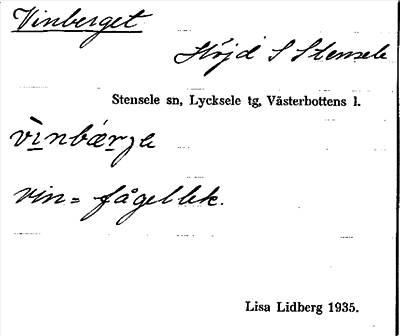 Vinberget
Höjd S Stensele
Stensele sn, Lycksele tg, Västerbottens l.
vìnbárʒe
vin = fågellek.
Lisa Lidberg 1935.